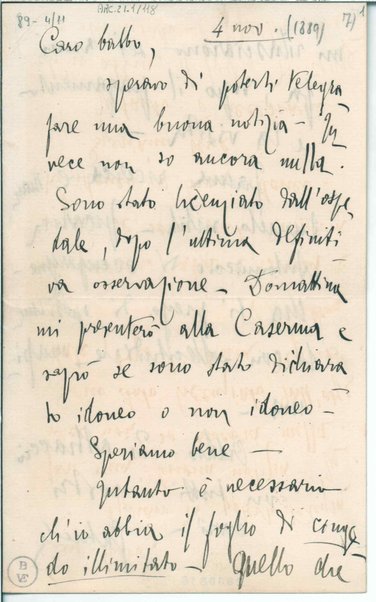 ARC.21.1/118
89- 4/11
4 nov. (1889)
Caro babbo,
speravo di poterti telegra
fare una buona notizia - In
vece non so ancora nulla.
Sono stato licenziato dall'ospe
dale, dopo l'ultima definiti
va osservazione - Domattina
mi presenterò alla Caserma e
saprò se sono stato dichiara
to idoneo o non idoneo -
Speriamo bene -
Intanto è necessario
ch'io abbia il foglio di conge
do illimitato - Quello che